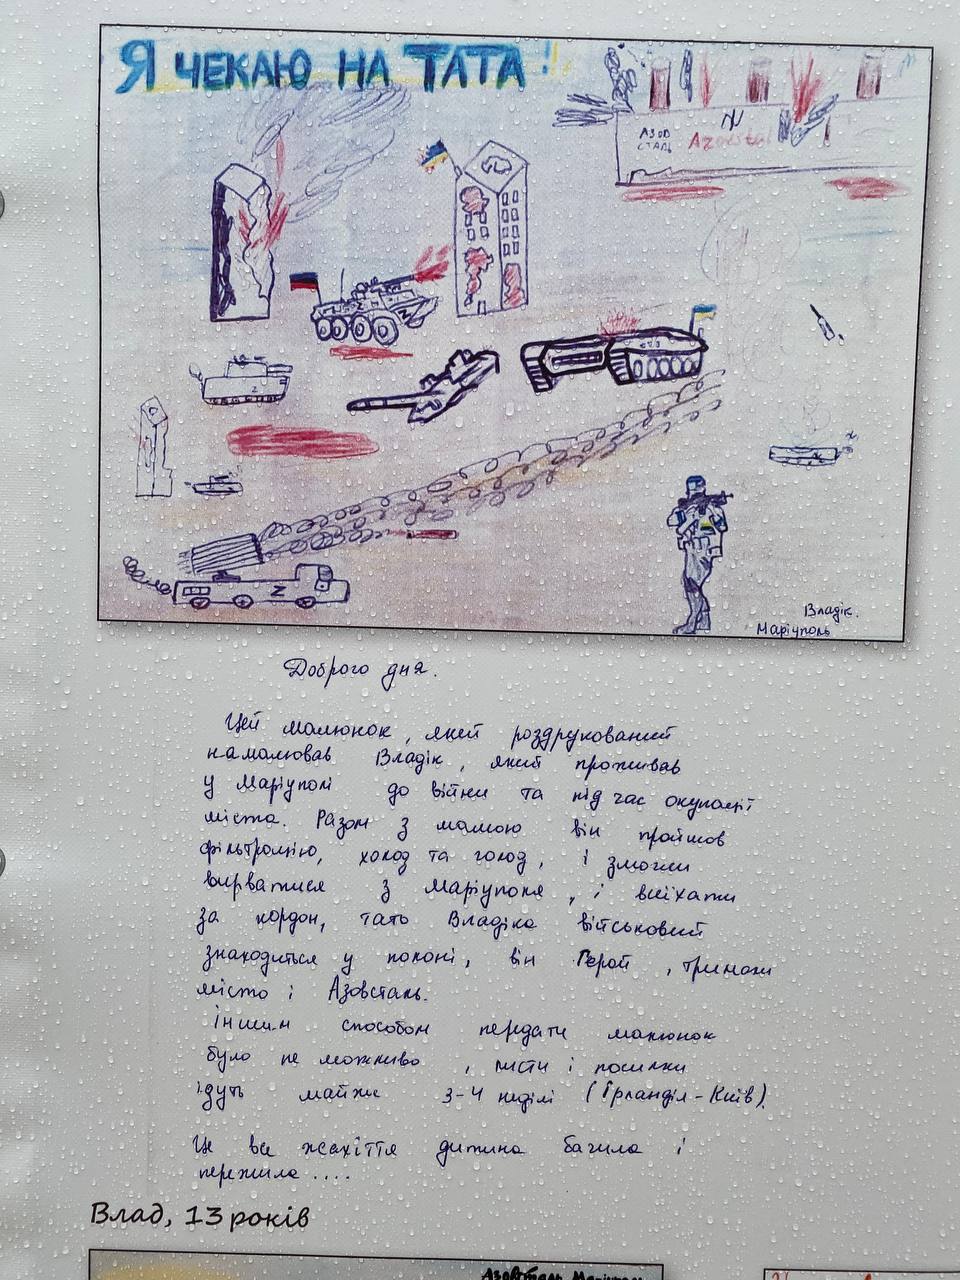 Я ЧЕКАЮ НА ТАТА!
АЗОВ
СТАЛЬ
Azovstal
Z
Z
Z
Владік.
Маріуполь
Доброго дня.
Цей малюнок, який роздрукований
намалював Владік, який проживав
у Маріуполі до війни та під час окупації
міста. Разом з мамою він пройшов
фільтрацію, холод та голод, і змогли
вирватися з Маріуполя, і виїхати
за кордон, тато Владіка військовий
знаходиться у полоні, він Герой, тримали
місто і Азовсталь.
іншим способом передати малюнок
було не можливо, листи і посилки
ідуть майже 3-4 неділі (Ірландія-Київ).
Це все жахіття дитина бачила і
пережила....
Влад, 13 років
Азовсталь Маріуполь